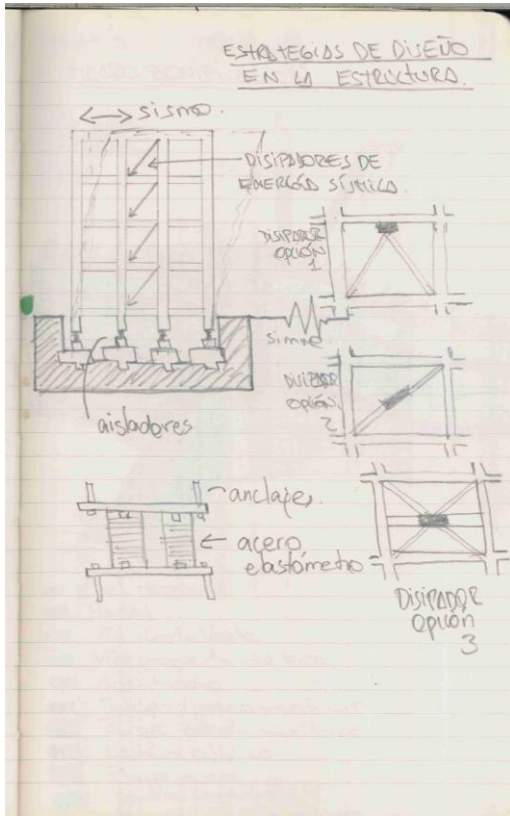 ESTRATEGIAS DE DISEÑO
EN LA ESTRUCTURA.
sismo.
DISIPADORES DE
ENERGÍA SÍSMICA.
DISIPADOR
OPCIÓN
1
sismo
DISIPADOR
OPCIÓN
2
aisladores
anclajes.
acero
elastómetro
DISIPADOR
OPCIÓN
3